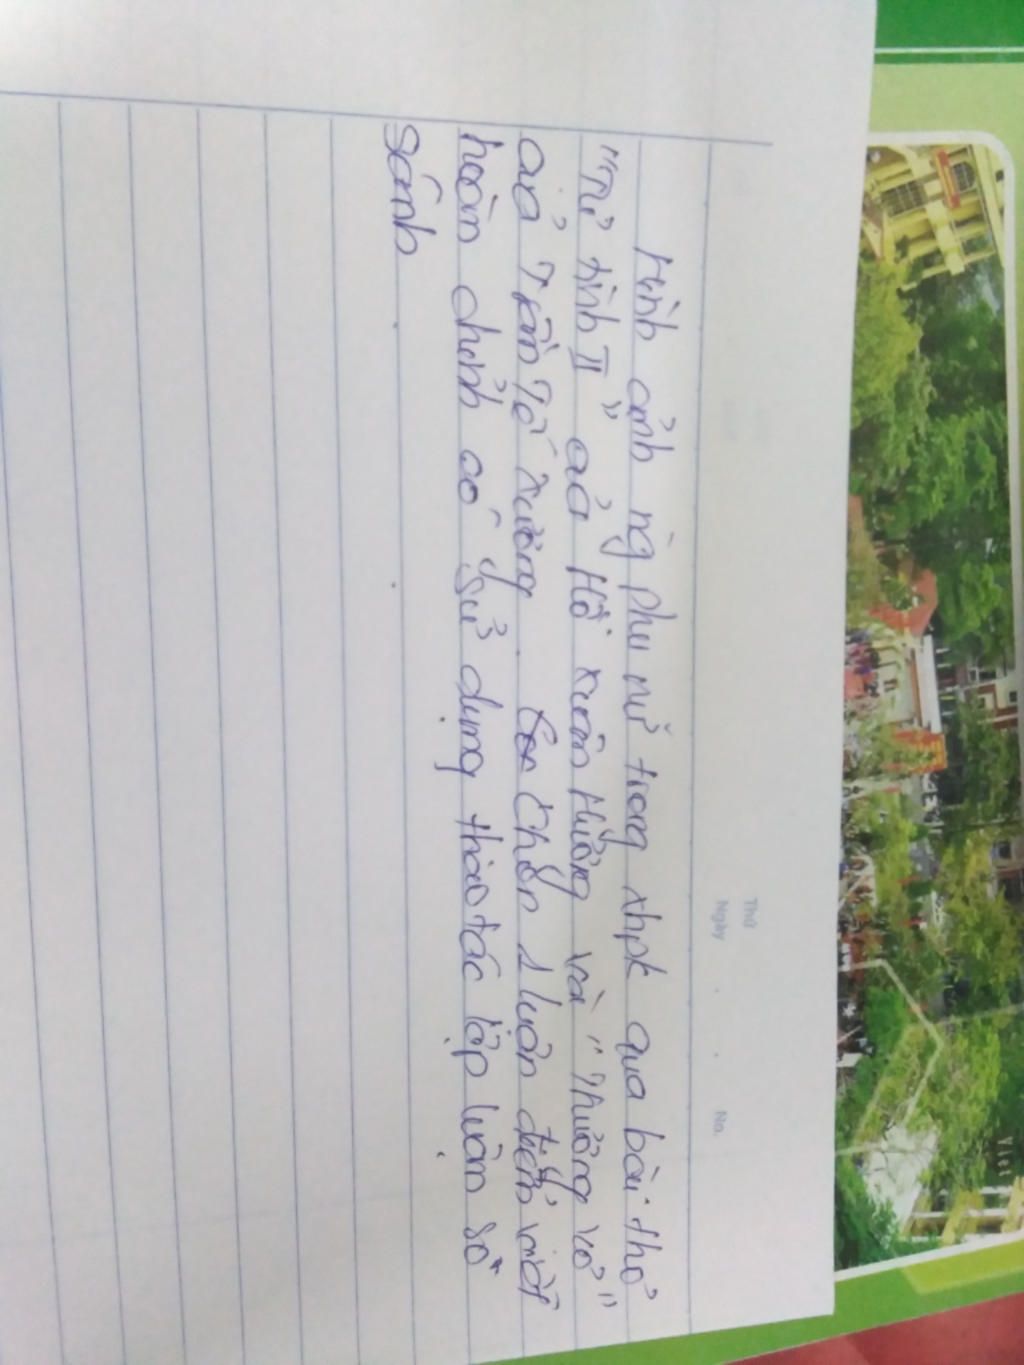 Thứ
Ngày . . No.
Hình ảnh ng` phụ nữ trong xhpk qua bài thơ
"Tự tình II" của Hồ Xuân Hương và "Thương vợ"
của Trần Tế Xương. Chọn 1 luận điểm viết
hoàn chỉnh có sử dụng thao tác lập luận so
sánh
Việt